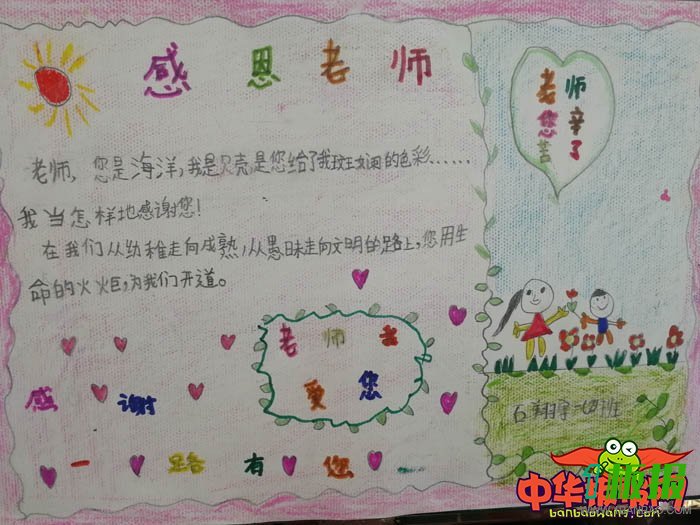 感恩老师
老师您
辛苦了
老师,您是海洋,我是贝壳,是您给了我斑斓的色彩……
我当怎样地感谢您!
在我们从幼稚走向成熟,从愚昧走向文明的路上,您用生
命的火炬,为我们开道。
老师我
爱您
感谢
一路有您
石翔宇 二(四)班
中华
banbaowang.com